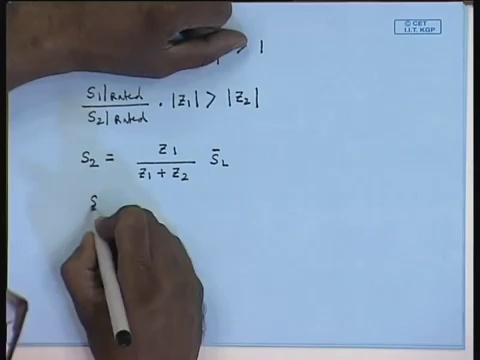 © CET
I.I.T. KGP
> 1
S₁|Rated / S₂|Rated · |Z₁| > |Z₂|
S₂ = Z₁ / (Z₁ + Z₂) S̄_L
S